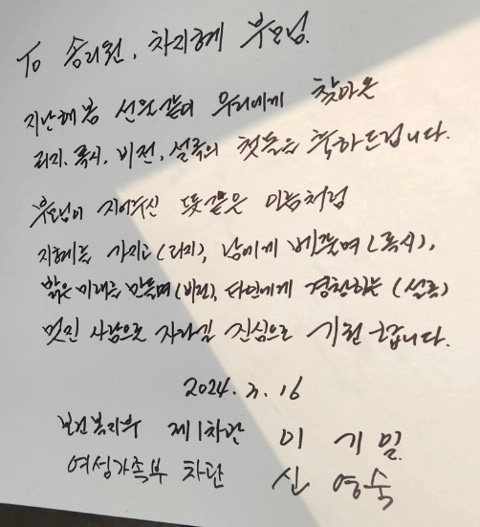 To 송리원, 차지혜 부모님.
지난해 봄 선물같이 우리에게 찾아온
리지, 록시, 비전, 설록의 첫돌을 축하드립니다.
부모님이 지어주신 뜻같은 이름처럼
지혜를 가지고 (리지), 남에게 베풀며 (록시),
밝은 미래를 만들며 (비전), 타인에게 경청하는 (설록)
멋진 사람으로 자라길 진심으로 기원합니다.
2024. 3. 16
보건복지부 제1차관 이 기 일
여성가족부 차관 신 영 숙